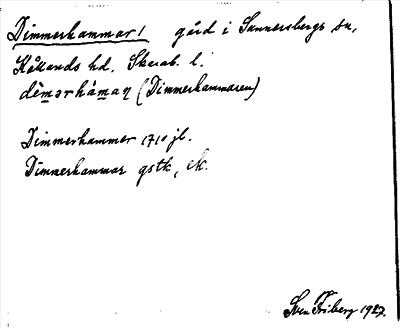 Dimmerhammar! gård i Sunnersbergs sn,
Kållands hd. Skarab. l.
dìmərhàman (Dimmerhammaren)
Dimmerhammer 1710 jb.
Dimmerhammar gstk, ek.
Sven Friberg 1927.